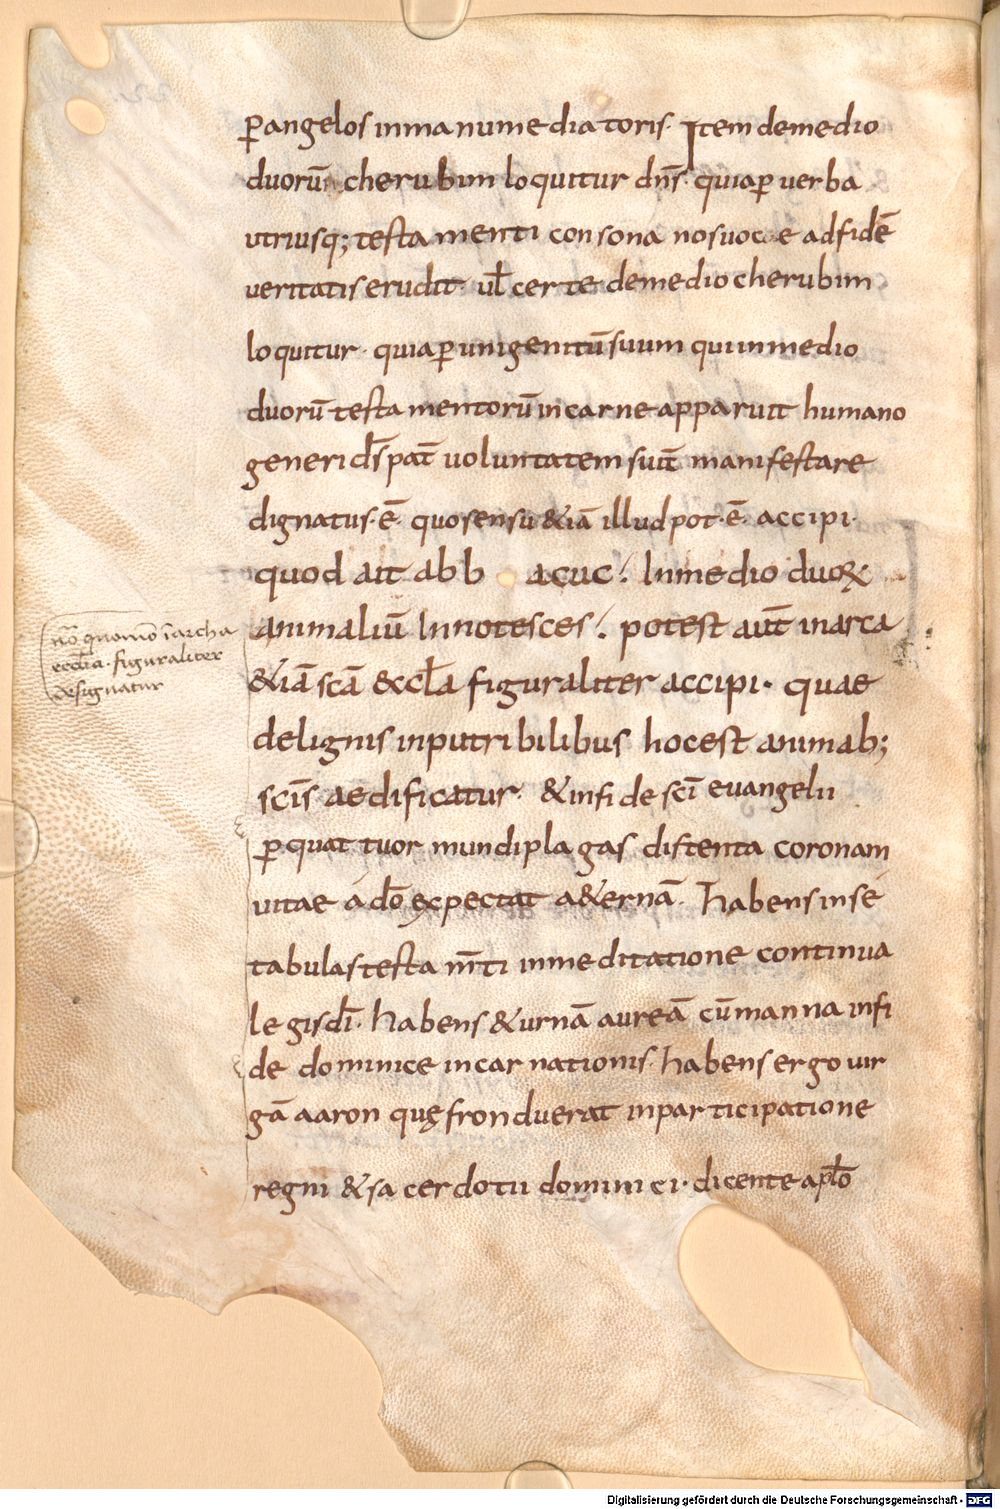 ꝑ angelos in manu mediatoris. Item de medio
duorū cherubim loquitur dn̄s. quia ꝑ verba
utriusq; testamenti consona nos uoce ad fidē
ueritatis erudit. ul̄ certe de medio cherubim
loquitur. quia ꝑ unigenitū suum qui in medio
duorū testamentorū in carne apparuit humano
generi dī pat̄ uoluntatem suā manifestare
dignatus ē. quo sensu &iā illud pot ē accipi.
quod ait abbacuc. In medio duoꝝ
animaliū Innotesces. potest aut̄ in arca
&iā scā eccl̄a figuraliter accipi. quae
de lignis inputribilibus hoc est animab;
scīs aedificatur. & in fide scī euangelii
ꝑ quattuor mundi plagas distenta coronam
uitae a dō expectat a&ernā. habens in se
tabulas testam̄ti in meditatione continua
legis dī. habens & urnā aureā cū manna in fi
de dominice incarnationis. habens ergo uir
gā aaron quę fronduerat in participatione
regni & sacerdotii dominici. dicente apl̄o
not̄ quomō ī archa
eccl̄ia figuraliter
designatur
Digitalisierung gefördert durch die Deutsche Forschungsgemeinschaft - DFG